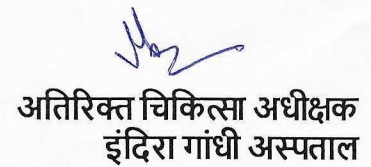 अतिरिक्त चिकित्सा अधीक्षक
इंदिरा गांधी अस्पताल